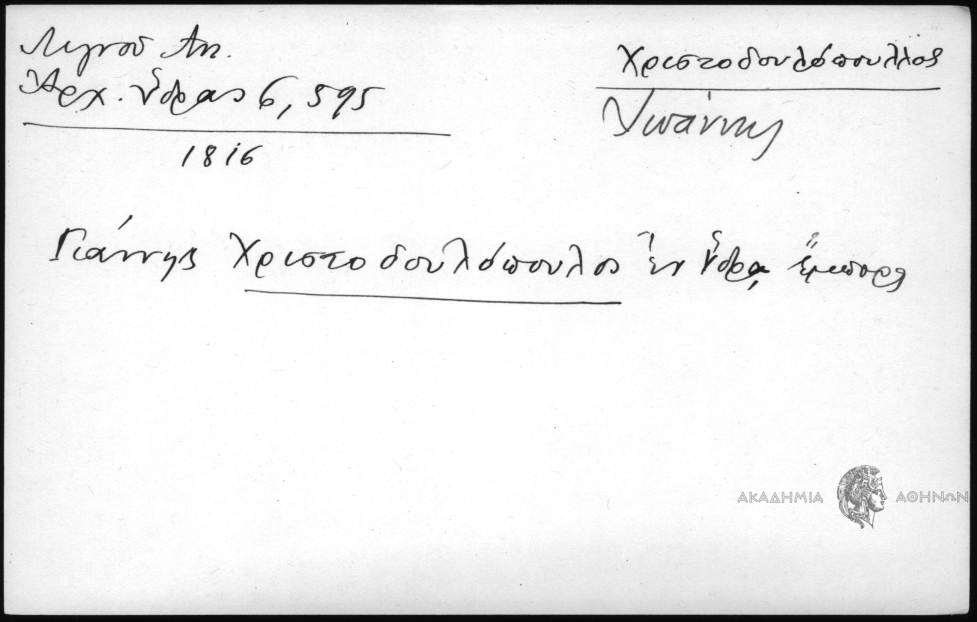 Λιγνοῦ Ἀντ.
Ἀρχ. Ὕδρας 6, 595
1816
Χριστοδουλόπουλλος
Ἰωάννης
Γιάννης Χριστοδουλόπουλος ἐν Ὕδρᾳ
ΑΚΑΔΗΜΙΑ ΑΘΗΝΩΝ